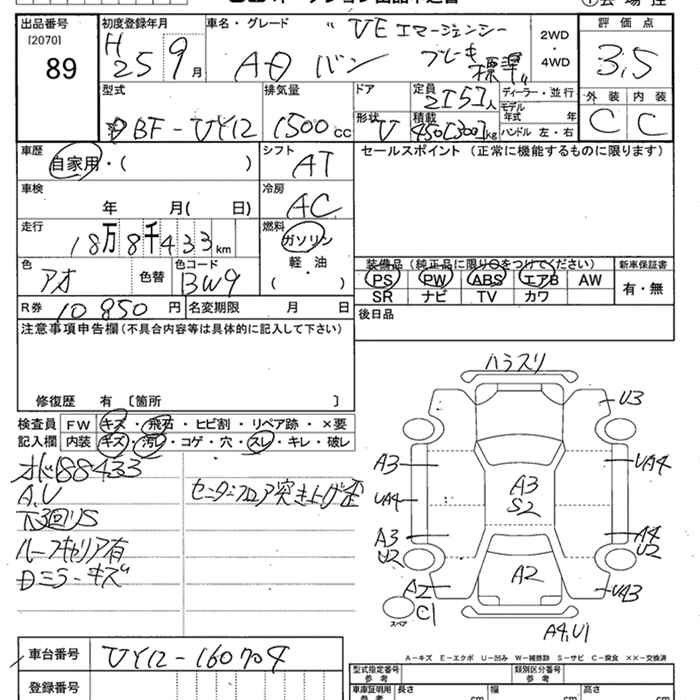 出品番号
[2070]
89
初度登録年月
H
25 9月
車名・グレード
"VE エマージェンシー
ブレーキ
標準"
ADバン
2WD
・
4WD
評価点
3,5
外装 内装
C C
型式
DBF-VY12
排気量
1500cc
ドア
形状
V
定員
2[5]人
積載
450[300]kg
ディーラー・並行
モデル
年式 年
ハンドル 左・右
車歴
自家用・( )
シフト
AT
車検
年 月( 日)
冷房
AC
走行
18万8千433km
燃料
ガソリン
軽・油
( ・ )
色
アオ
色替
色コード
BW9
R券 10850円
名変期限 月 日
セールスポイント (正常に機能するものに限ります)
装備品 (純正品に限り○をつけてください)
PS PW ABS エアB AW
SR ナビ TV カワ
新車保証書
有・無
後日品
注意事項申告欄(不具合内容等は具体的に記入して下さい)
修復歴 有 [箇所 ]
検査員
記入欄
FW キズ・飛石・ヒビ割・リペア跡・×要
内装 キズ・汚レ・コゲ・穴・スレ・キレ・破レ
オド188433
A,U
下3回りS
ルーフキャリア有
Dミラーキズ
センターフロア突き上げ歪
ハラスリ
U3
A3
UA4
UA4
A3
S2
A3
U2
A4
U2
A2
A2
UA3
C1
スペア
A4,U1
A-キズ E-エクボ U-凹み W-補修跡 S-サビ C-腐食 ××-交換済
車台番号 VY12-160704
登録番号
型式指定番号
参考
類別区分番号
参考
車庫証明用
参考
長さ cm
幅 cm
高さ cm